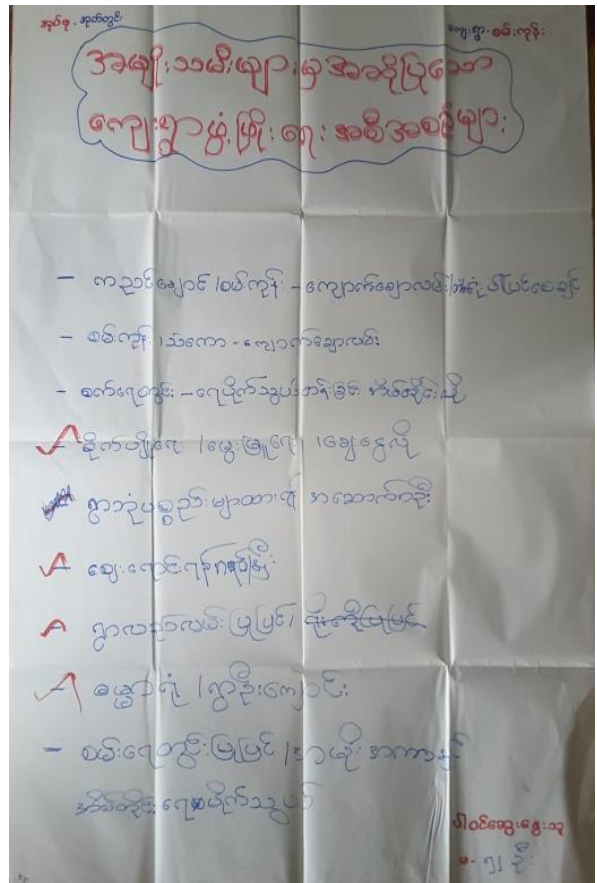 အုပ်စု - အုတ်တွင်း
ကျေးရွာ - စမ်းကုန်း
အမျိုးသမီးများမှအဆိုပြုသော
ကျေးရွာဖွံ့ဖြိုးရေး အစီအစဉ်များ
- ကညင်ချောင် / စမ်းကုန်း - ကျောက်ချောလမ်း
- စမ်းကုန်း / သံကော - ကျောက်ချောလမ်း
- စက်ရေတွင်း - ရေပိုက်သွယ်တန်းခြင်း အိမ်တိုင်းသို့
- စိုက်ပျိုးရေး / မွေးမြူရေး / ချေးငွေလို
ရွာဘုံပစ္စည်းများထားရန် အဆောက်အဦး
- ဈေးရောင်းရန်
- ရွာလယ်လမ်းပြုပြင်
- ဓမ္မာရုံ / ရွာဦးကျောင်း
- စမ်းရေတွင်းပြုပြင် / အမိုး အကာနှင့်
အိမ်တိုင်း ရေပိုက်သွယ်
ပါဝင်ဆွေးနွေးသူ
မ - ၅၂ ဦး